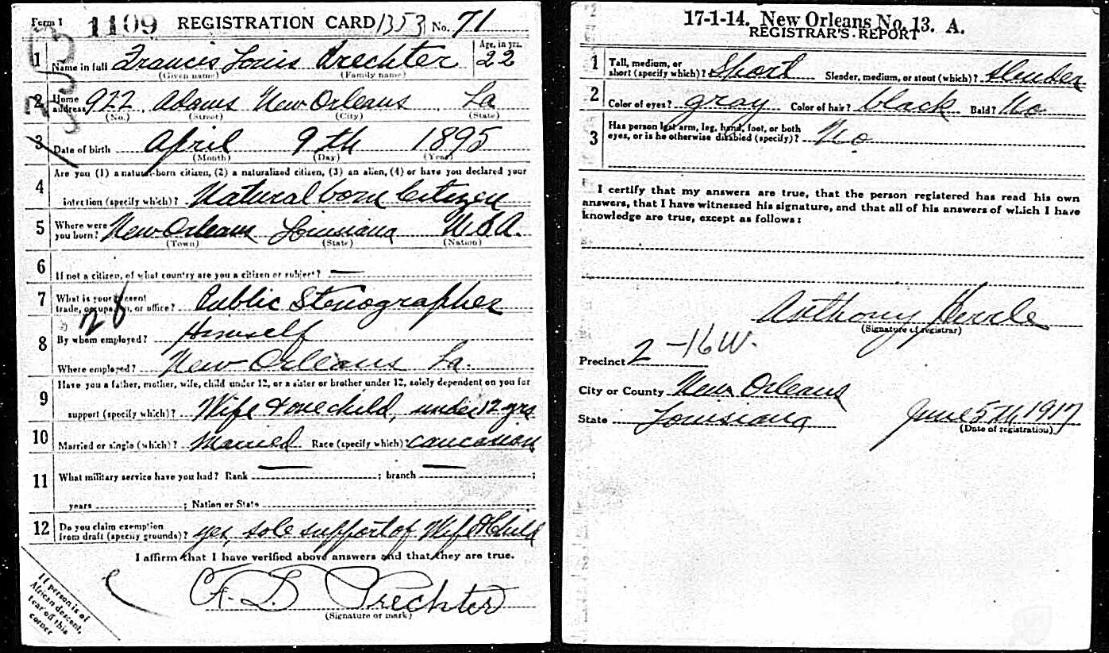 Form 1 1109 REGISTRATION CARD 1353 No. 71
1 Name in full Francis Louis Prechter Age, in yrs. 22
(Given name) (Family name)
2 Home address 922 Adams New Orleans La
(No.) (Street) (City) (State)
3 Date of birth April 9th 1895
(Month) (Day) (Year)
Are you (1) a natural-born citizen, (2) a naturalized citizen, (3) an alien, (4) or have you declared your
4 intention (specify which)? Natural born Citizen
5 Where were you born? New Orleans Louisiana U.S.A.
(Town) (State) (Nation)
6 If not a citizen, of what country are you a citizen or subject? —
7 What is your present trade, occupation, or office? Public Stenographer
28
8 By whom employed? Himself
Where employed? New Orleans La.
Have you a father, mother, wife, child under 12, or a sister or brother under 12, solely dependent on you for
9 support (specify which)? Wife & one child, under 12 yrs
10 Married or single (which)? Married Race (specify which)? caucasion
11 What military service have you had? Rank — ; branch — ;
years ; Nation or State
12 Do you claim exemption from draft (specify grounds)? yes, sole support of Wife & Child
I affirm that I have verified above answers and that they are true.
F. L. Prechter
(Signature or mark)
If person is of
African descent,
tear off this
corner
17-1-14. New Orleans No. 13. A.
REGISTRAR'S REPORT
1 Tall, medium, or short (specify which)? Short Slender, medium, or stout (which)? slender
2 Color of eyes? gray Color of hair? black Bald? No
3 Has person lost arm, leg, hand, foot, or both eyes, or is he otherwise disabled (specify)? No
I certify that my answers are true, that the person registered has read his own
answers, that I have witnessed his signature, and that all of his answers of which I have
knowledge are true, except as follows:
Anthony
(Signature of registrar)
Precinct 2 -16W.
City or County New Orleans
State Louisiana June 5th 1917
(Date of registration)